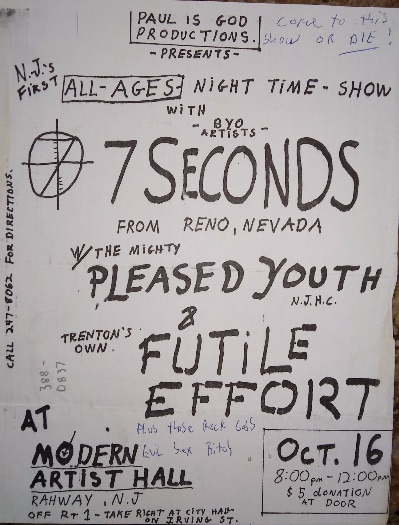 PAUL IS GOD
PRODUCTIONS.
- PRESENTS -
Come to this
show OR DIE!
N.J.'S
FIRST
ALL-AGES- NIGHT TIME - SHOW
WITH
- BYO
ARTISTS -
7 SECONDS
FROM RENO, NEVADA
W/ THE MIGHTY
PLEASED YOUTH
N.J.H.C.
&
TRENTON'S
OWN.
FUTILE
EFFORT
CALL 247-8062 FOR DIRECTIONS.
388-
0837
Plus those Rock Gods
Evil Sex Bitch
AT
MODERN
ARTIST HALL
RAHWAY, N.J
OFF Rt 1 - TAKE RIGHT AT CITY HALL
ON IRVING ST.
OCT. 16
8:00pm - 12:00pm
$5 DONATION
AT DOOR